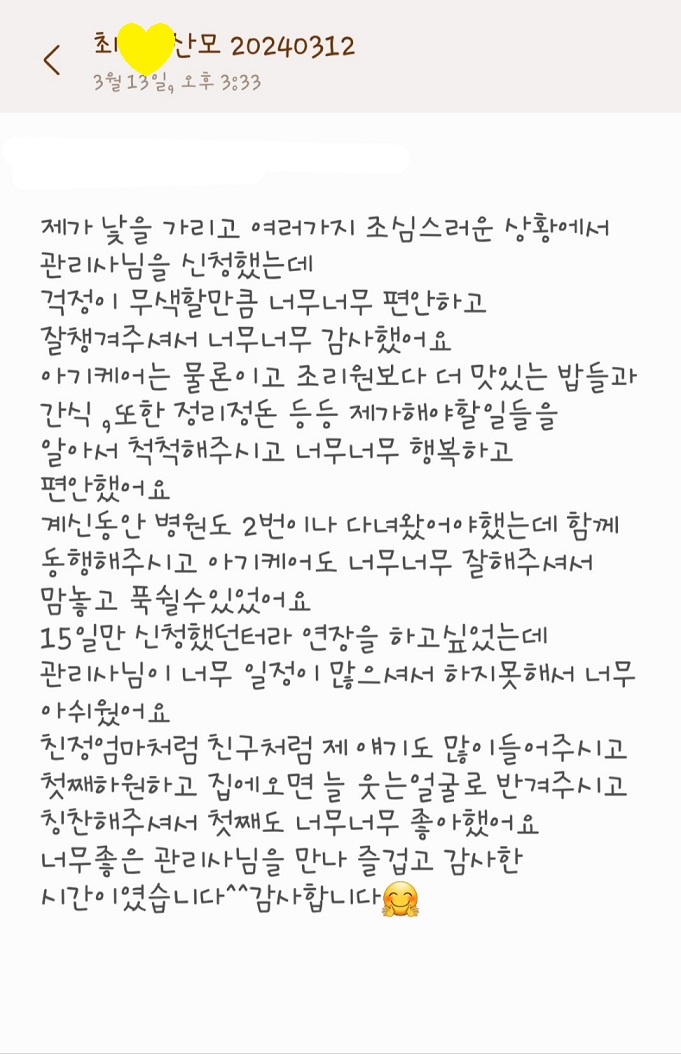 최 산모 20240312
3월 13일, 오후 3:33
제가 낯을 가리고 여러가지 조심스러운 상황에서
관리사님을 신청했는데
걱정이 무색할만큼 너무너무 편안하고
잘챙겨주셔서 너무너무 감사했어요
아기케어는 물론이고 조리원보다 더 맛있는 밥들과
간식 ,또한 정리정돈 등등 제가해야할일들을
알아서 척척해주시고 너무너무 행복하고
편안했어요
계신동안 병원도 2번이나 다녀왔어야했는데 함께
동행해주시고 아기케어도 너무너무 잘해주셔서
맘놓고 푹쉴수있었어요
15일만 신청했던터라 연장을 하고싶었는데
관리사님이 너무 일정이 많으셔서 하지못해서 너무
아쉬웠어요
친정엄마처럼 친구처럼 제 얘기도 많이들어주시고
첫째하원하고 집에오면 늘 웃는얼굴로 반겨주시고
칭찬해주셔서 첫째도 너무너무 좋아했어요
너무좋은 관리사님을 만나 즐겁고 감사한
시간이였습니다^^감사합니다🤗